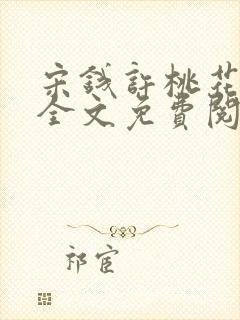 宋钱許桃花
全文免費閱
祁宦